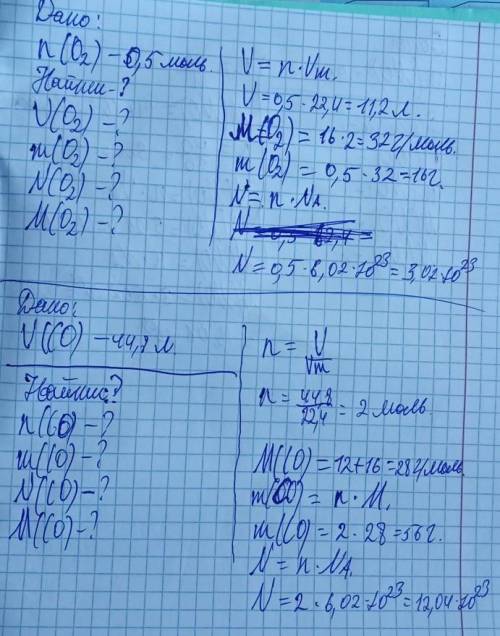 Дано:
n(O₂) – 0,5 моль.
Найти-?
V(O₂) – ?
m(O₂) – ?
N(O₂) – ?
M(O₂) – ?
V = n · Vm.
V = 0,5 · 22,4 = 11,2 л.
M(O₂) = 16 · 2 = 32 г/моль.
m(O₂) = 0,5 · 32 = 16 г.
N = n · NA.
N = 0,5 · 6,02 · 10²³ = 3,02 · 10²³
Дано:
V(CO) – 44,8 л.
Найти:?
n(CO) – ?
m(CO) – ?
N(CO) – ?
M(CO) - ?
n = V/Vm
n = 44,8/22,4 = 2 моль
M(CO) = 12 + 16 = 28 г/моль.
m(CO) = n · M.
m(CO) = 2 · 28 = 56 г.
N = n · NA.
N = 2 · 6,02 · 10²³ = 12,04 · 10²³